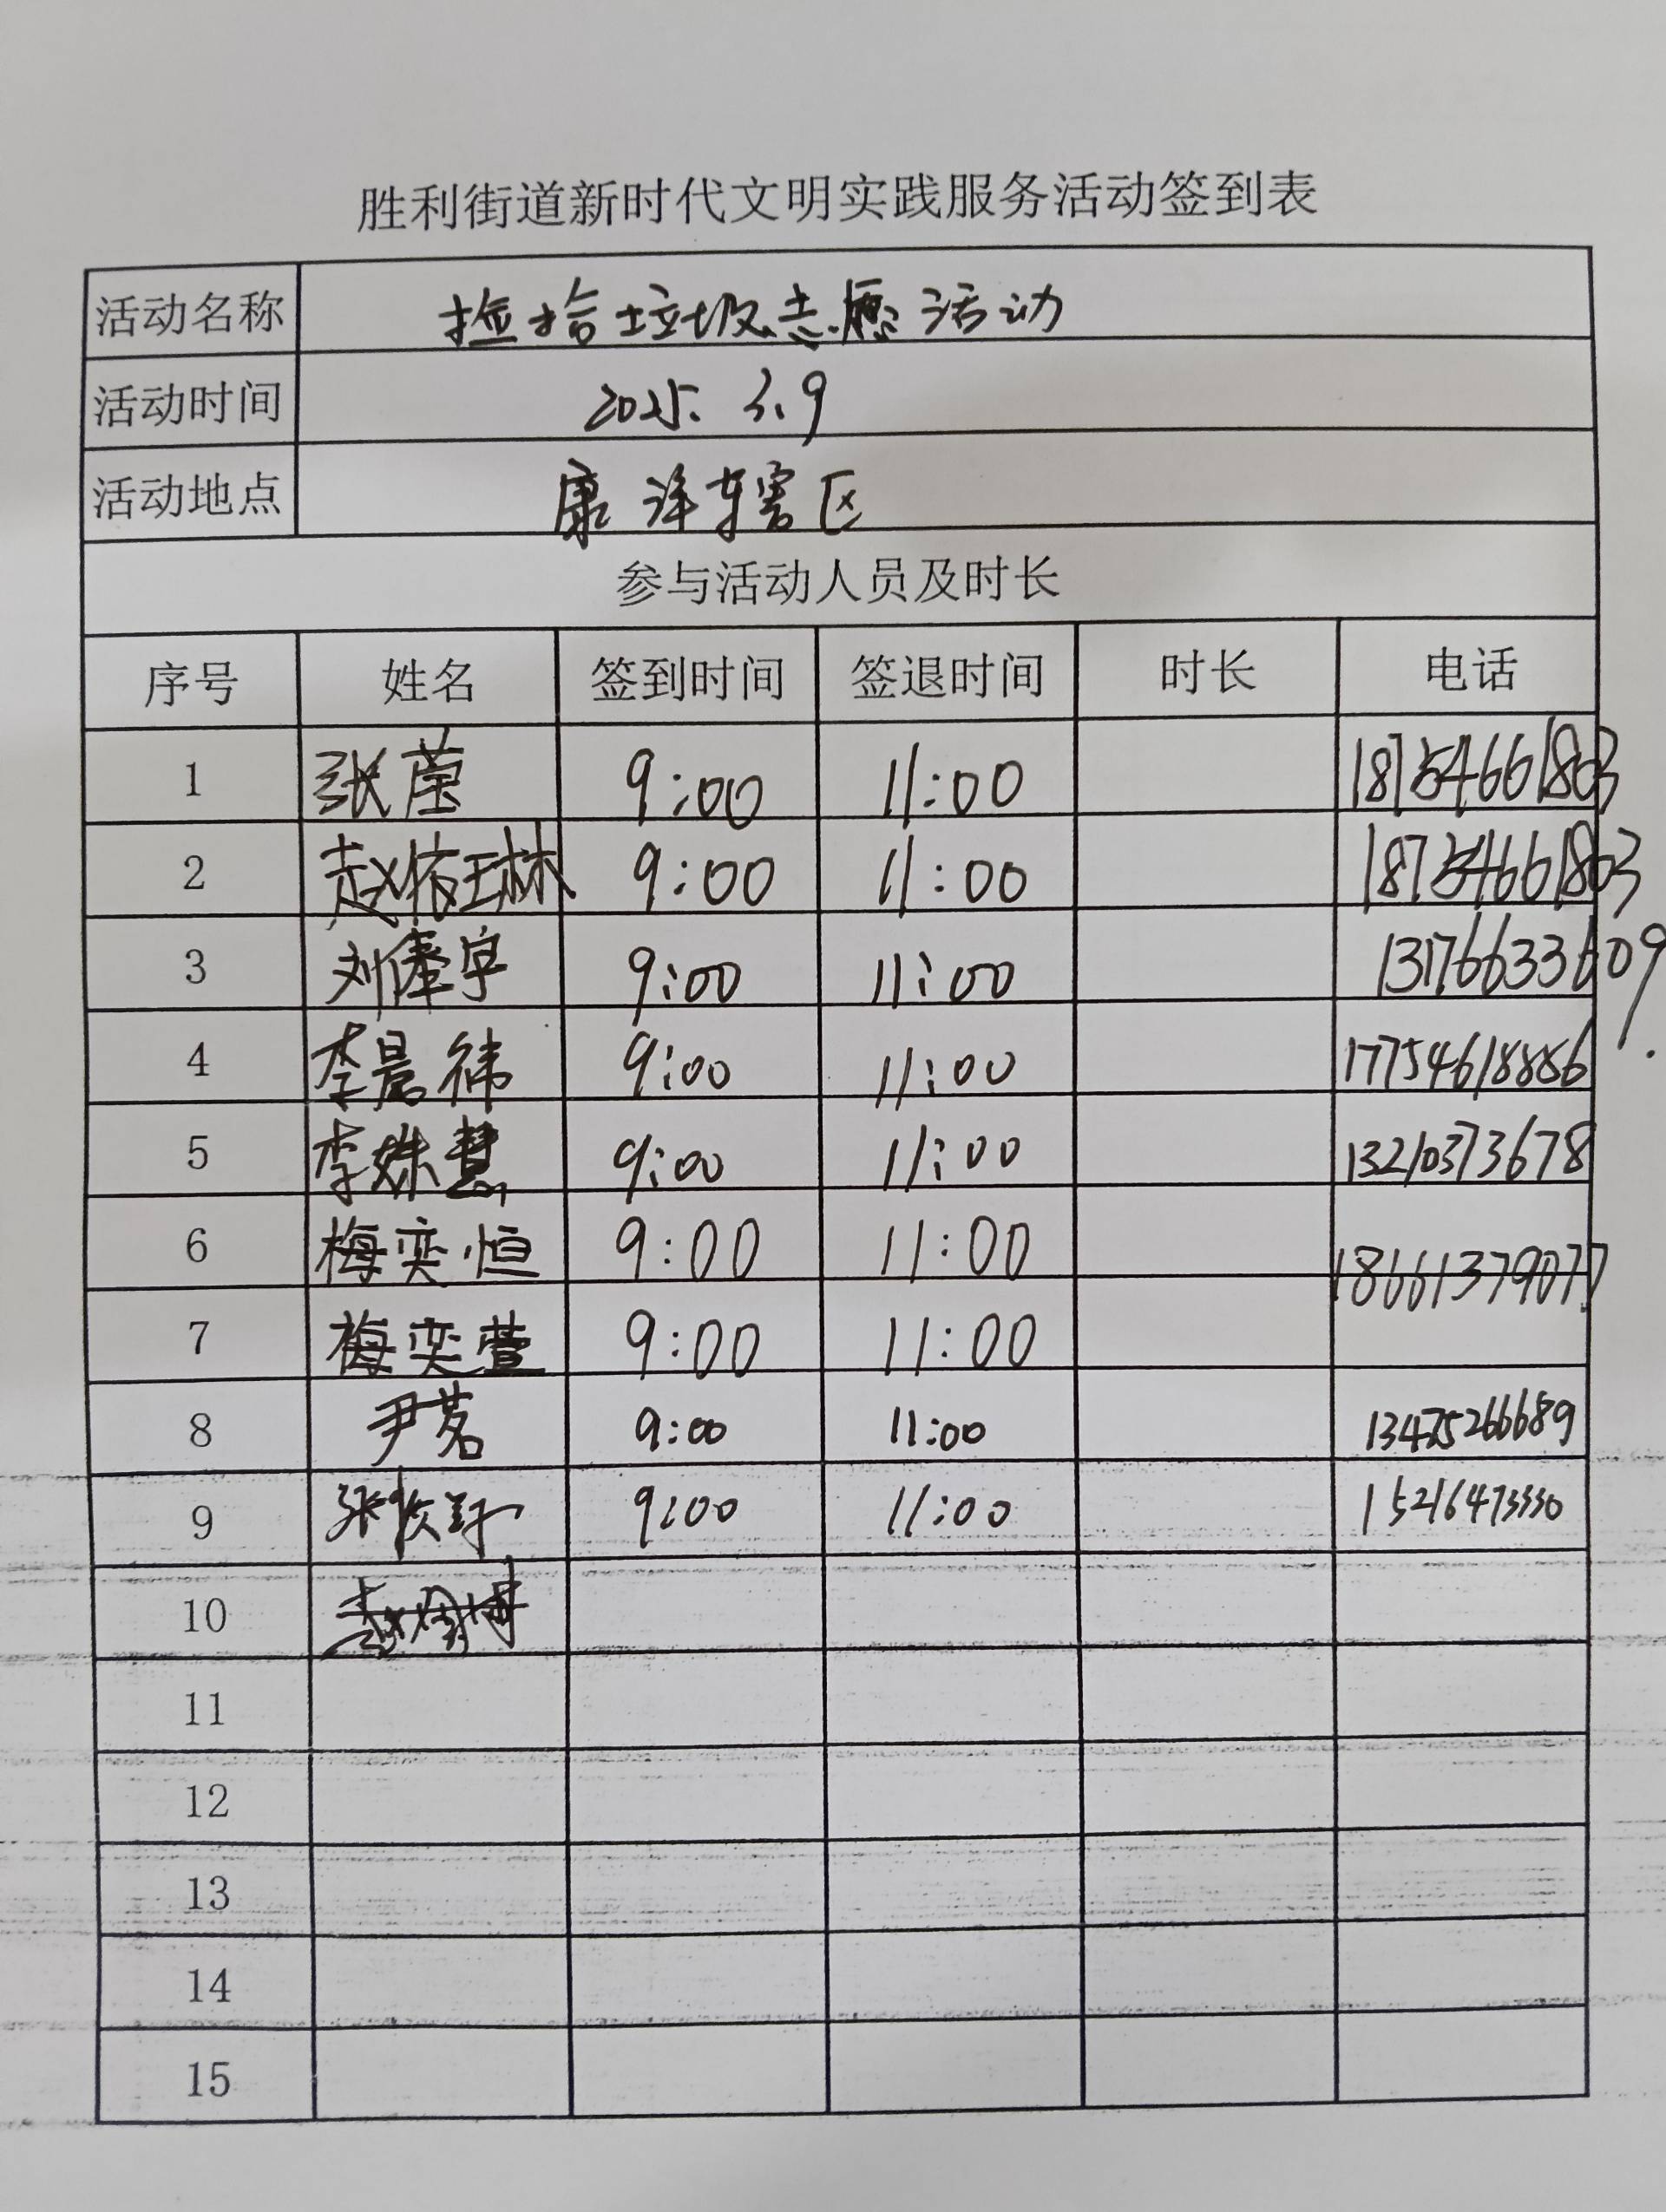 胜利街道新时代文明实践服务活动签到表
活动名称 捡拾垃圾志愿活动
活动时间 2025. 3.9
活动地点 康洋辖区
参与活动人员及时长
序号 姓名 签到时间 签退时间 时长 电话
1 张莹 9:00 11:00 18754661803
2 赵依琳 9:00 11:00 18754661803
3 刘 宇 9:00 11:00 13176633609
4 李晨祎 9:00 11:00 17754618886
5 李姝慧 9:00 11:00 13210373678
6 梅奕恒 9:00 11:00 18661379077
7 梅奕萱 9:00 11:00
8 尹茗 9:00 11:00 13475266689
9 张 9:00 11:00
10
11
12
13
14
15